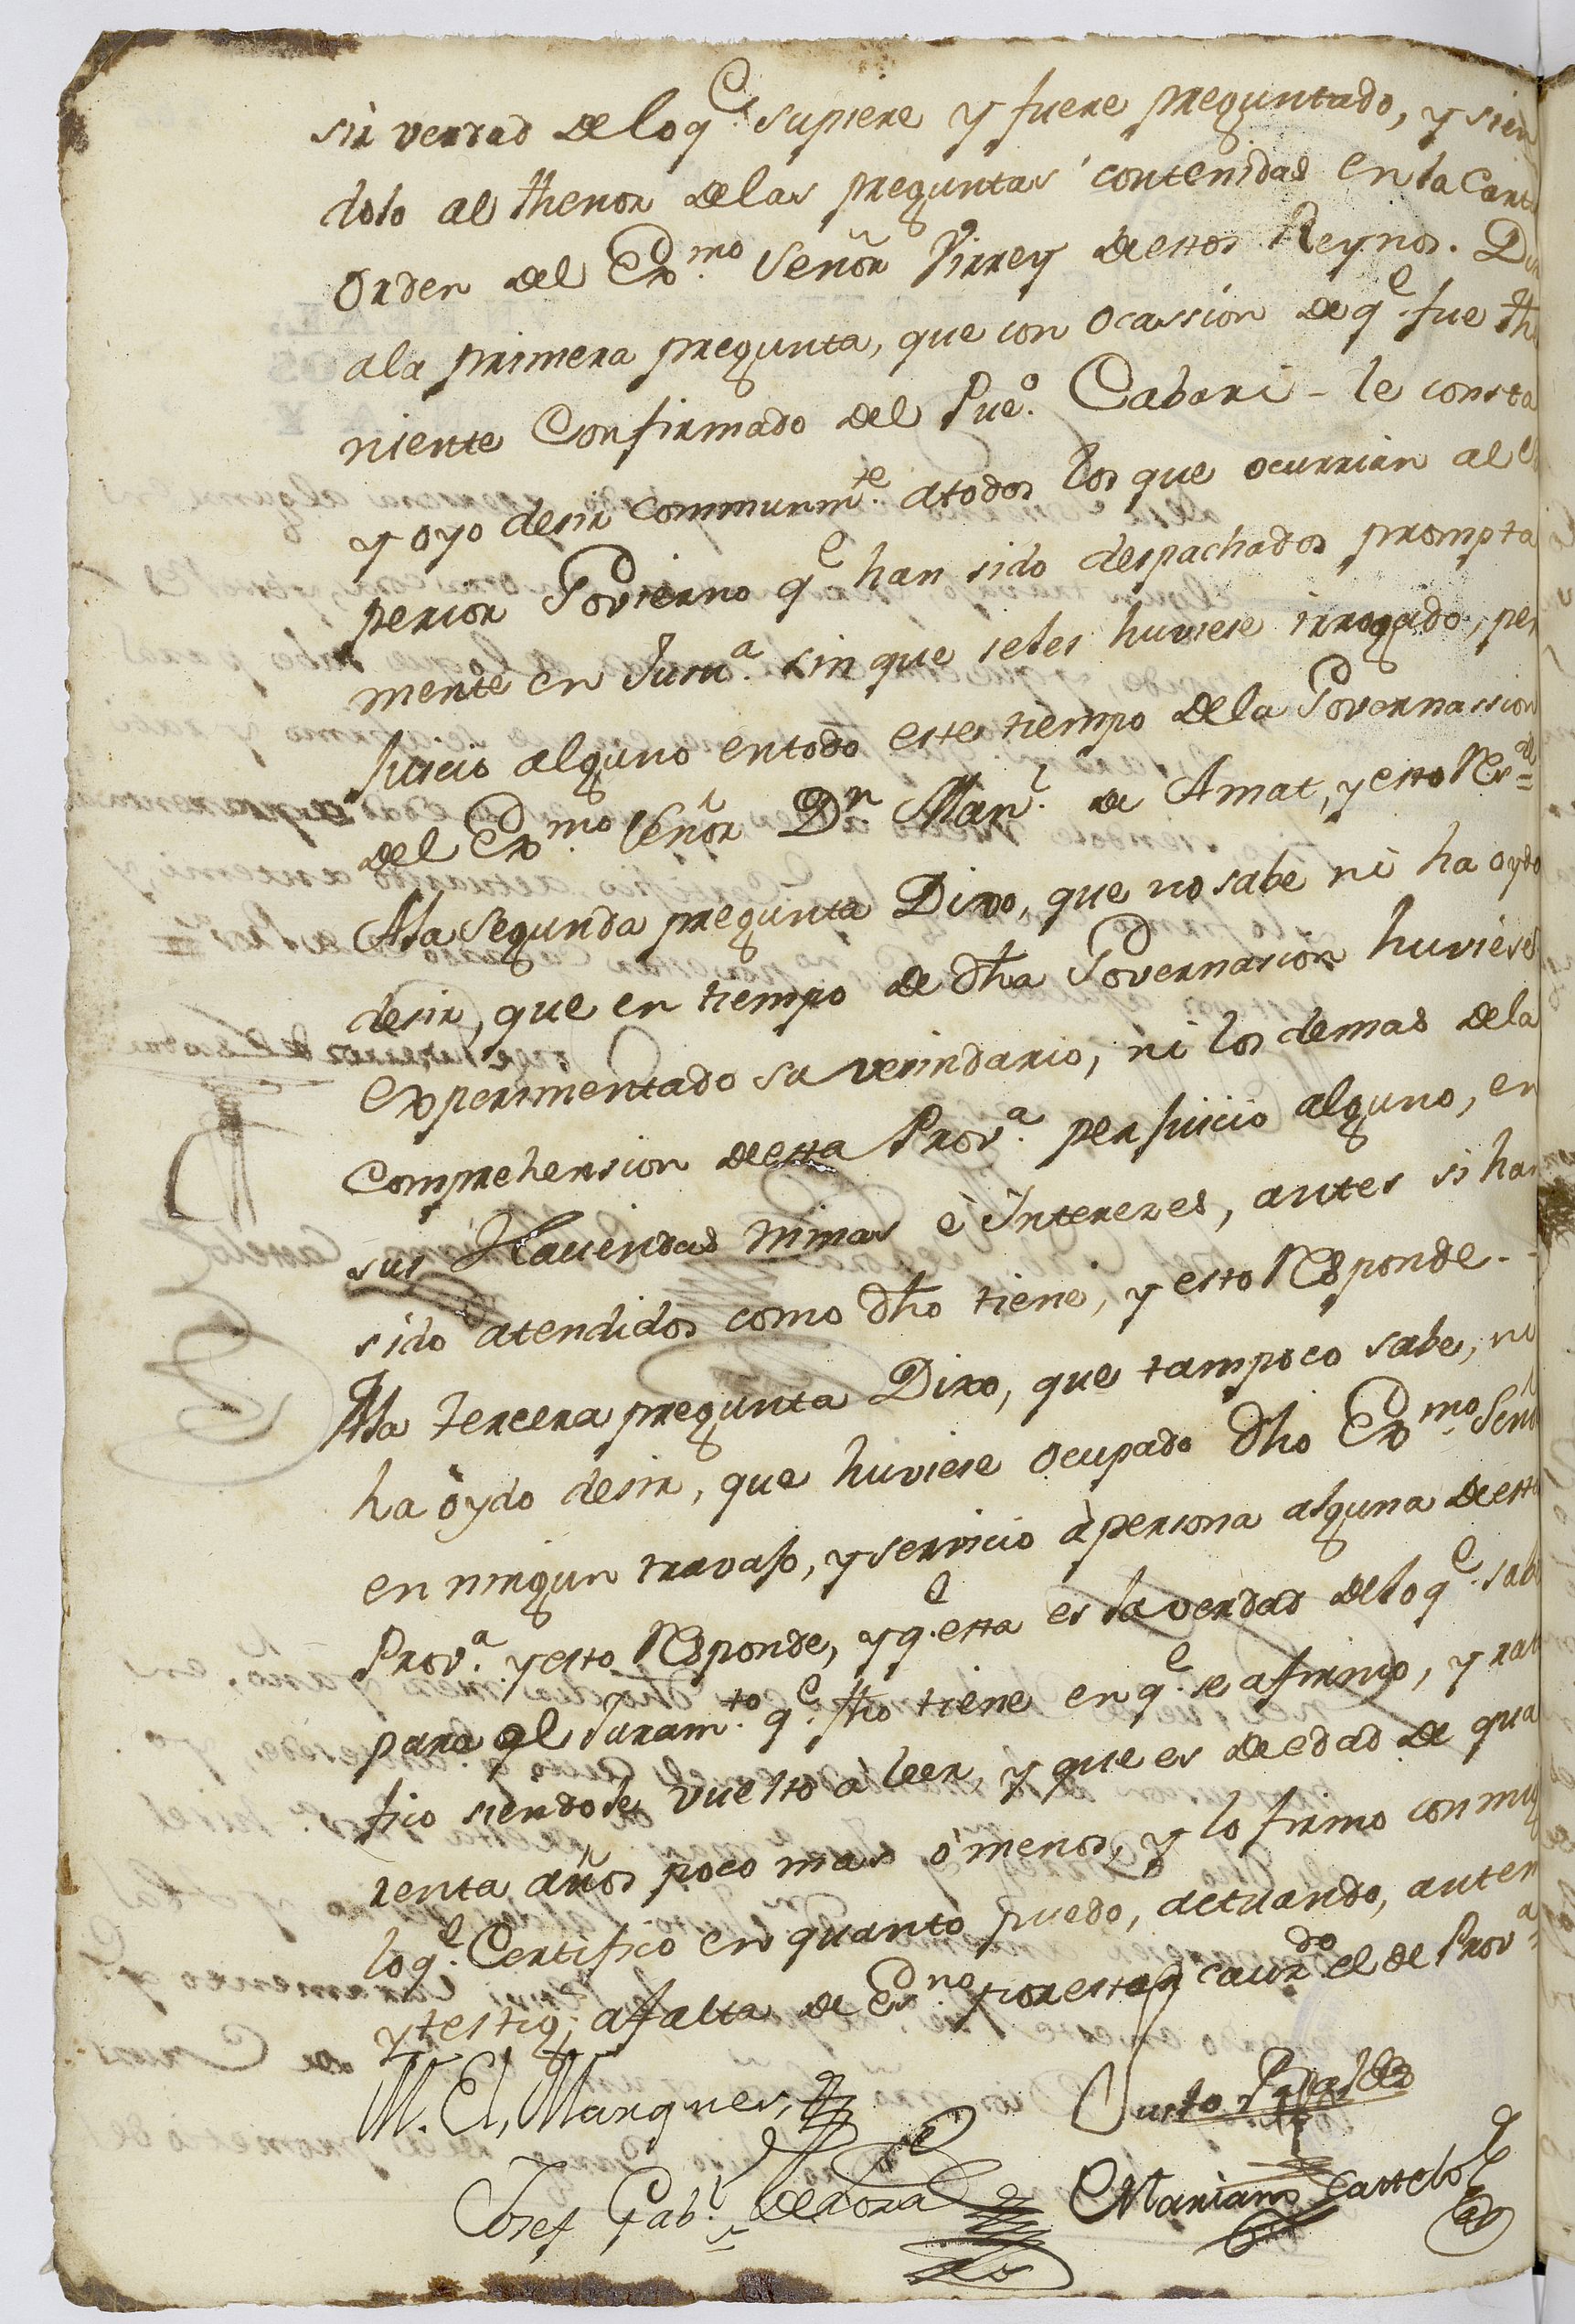 sir verdad de lo q.e supiere y fuere preguntado, y sien
dolo al thenor de las preguntas contenidas en la Carta
orden del Exmo. Señor Virrey de estos Reynos. Dixo
a la primera pregunta, que con ocassion de q.e fue the
niente Confirmado del Pue.o Cabari - le consta
y oyo desir communm.te a todos los que ocurrian al
perior Govierno q.e han sido despachados prompta
mente en Justt.a sin que se les huviese irrogado, per
juicio alguno en todo este tiempo de la Governassion
del Exmo. Señor Dn. Man.l de Amat, y esto Res.de
A la segunda pregunta Dixo, que no sabe ni ha oydo
desir, que en tiempo de dha Governasion huviese
experimentado su vesindario, ni los demas de la
Comprehension de esta Prov.a perjuicio alguno, en
sus Haciendas minas è Interezes, antes si han
sido atendidos como dho tiene, y esto Responde - -
A la tercera pregunta Dixo, que tampoco sabe, ni
ha oydo desir, que huviese ocupado dho Exmo. Señor
en ningun travajo, y servicio à persona alguna de esta
Prov.a y esto Responde, y q.e esta es la verdad de lo q.e sabe
para el Juram.to q.e fho tiene en q.e se afirmo, y rati
fico siendole vuelto à leer, y que es de edad de qua
renta años poco mas ò menos, y lo firmo conmigo
lo q.e Certifico en quanto puedo, actuando, ante mi
y testig.s a falta de Es.no por estar caus.do el de Prov.a
M. El, Marques,
Justo
Josef Gab.l de Mora
Mariano Castelo